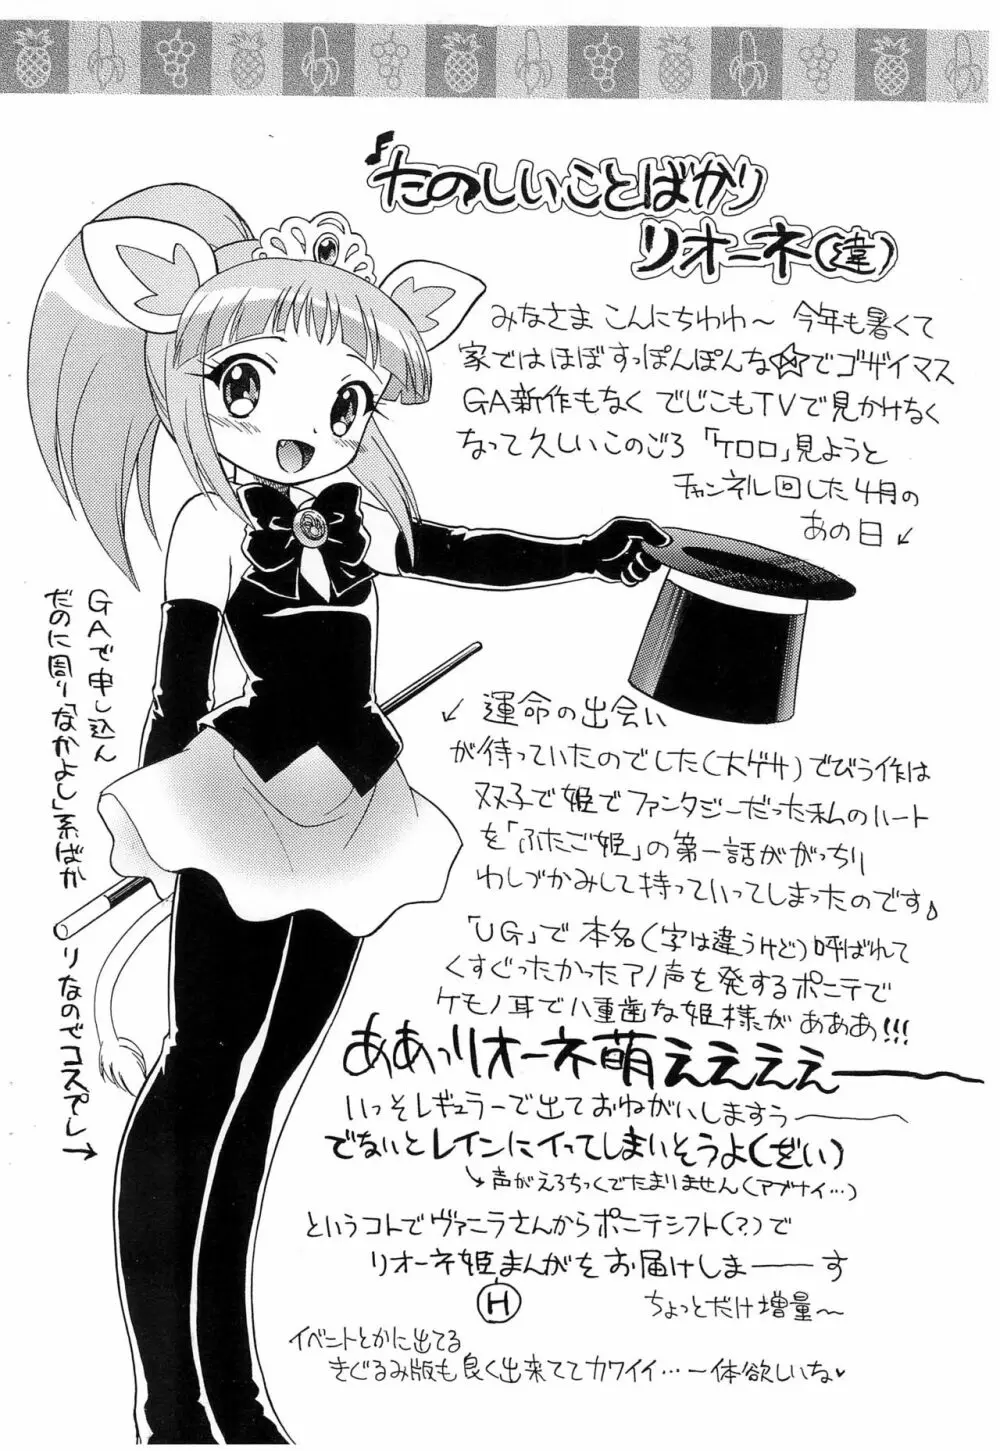 ♪たのしいことばかり
リオーネ(違)
みなさま こんにちわわ〜 今年も暑くて
家ではほぼすっぽんぽんな☆でゴザイマス
GA新作もなく でじこもTVで見かけなく
なって久しいこのごろ 「ケロロ」見ようと
チャンネル回した4月の
あの日↙
↙ 運命の出会い
が待っていたのでした(大ゲサ)でびう作は
双子で姫でファンタジーだった私のハート
を「ふたご姫」の第一話ががっちり
わしづかみして持っていってしまったのです♪
「UG」で 本名(字は違うけど)呼ばれて
くすぐったかったアノ声を発するポニテで
ケモノ耳で八重歯な姫様が あああ!!!
ああっリオーネ萌ええええ――
いっそレギュラーで出ておねがいしますぅ――
でないとレインにイってしまいそうよ(ざい)
↳声がえろちっくでたまりません(アブナイ…)
というコトでヴァニラさんからポニテシフト(?)で
リオーネ姫まんがを お届けしま――す
H
ちょっとだけ増量〜
イベントとかに出てる
きぐるみ版も良く出来ててカワイイ…一体欲しいな♥
GAで申し込ん
だのに周り「なかよし」系ばか
りなのでコスプレ→